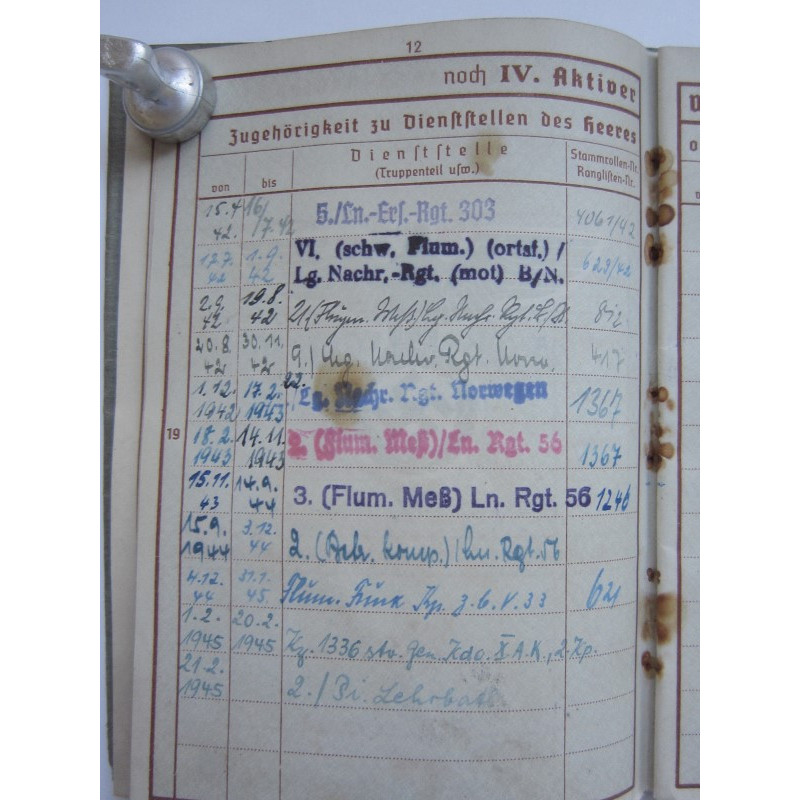 12
noch IV. Aktiver
Zugehörigkeit zu Dienststellen des Heeres
von
bis
Dienststelle
(Truppenteil usw.)
Stammrollen-Nr.
Ranglisten-Nr.
15.4 16/ 5./Ln.-Ers.-Rgt. 303 4061/42
42. 7.42
17.7. 1.9. VI. (schw. Flum.) (ortsf.) / 623/42
42 42 Lg. Nachr.-Rgt. (mot) B/N.
2.9. 19.8. 21.(Flugm. Meß) Lg. Nachr. Rgt.
42 42
20.8. 30.11. 9./Lg. Nachr. Rgt. Norw. 417
42 42
1.12. 17.2. 22./Lg. Nachr. Rgt. Norwegen 1367
1942 1943
19
18.2. 14.11. 2. (Flum. Meß)/Ln. Rgt. 56 1367
1943 1943
15.11. 14.9. 3. (Flum. Meß) Ln. Rgt. 56 1246
43 44
15.9. 3.12. 2. Komp.)/Ln. Rgt. 56
1944 44
4.12. 31.1. Flum. Funk Kp. z.b.V. 33 621
44 45.
1.2. 20.2.
1945 1945 1336 stv. Gen. Kdo. X A.K., 2. Kp.
21.2.
1945 2./Pi. Lehrbatl.